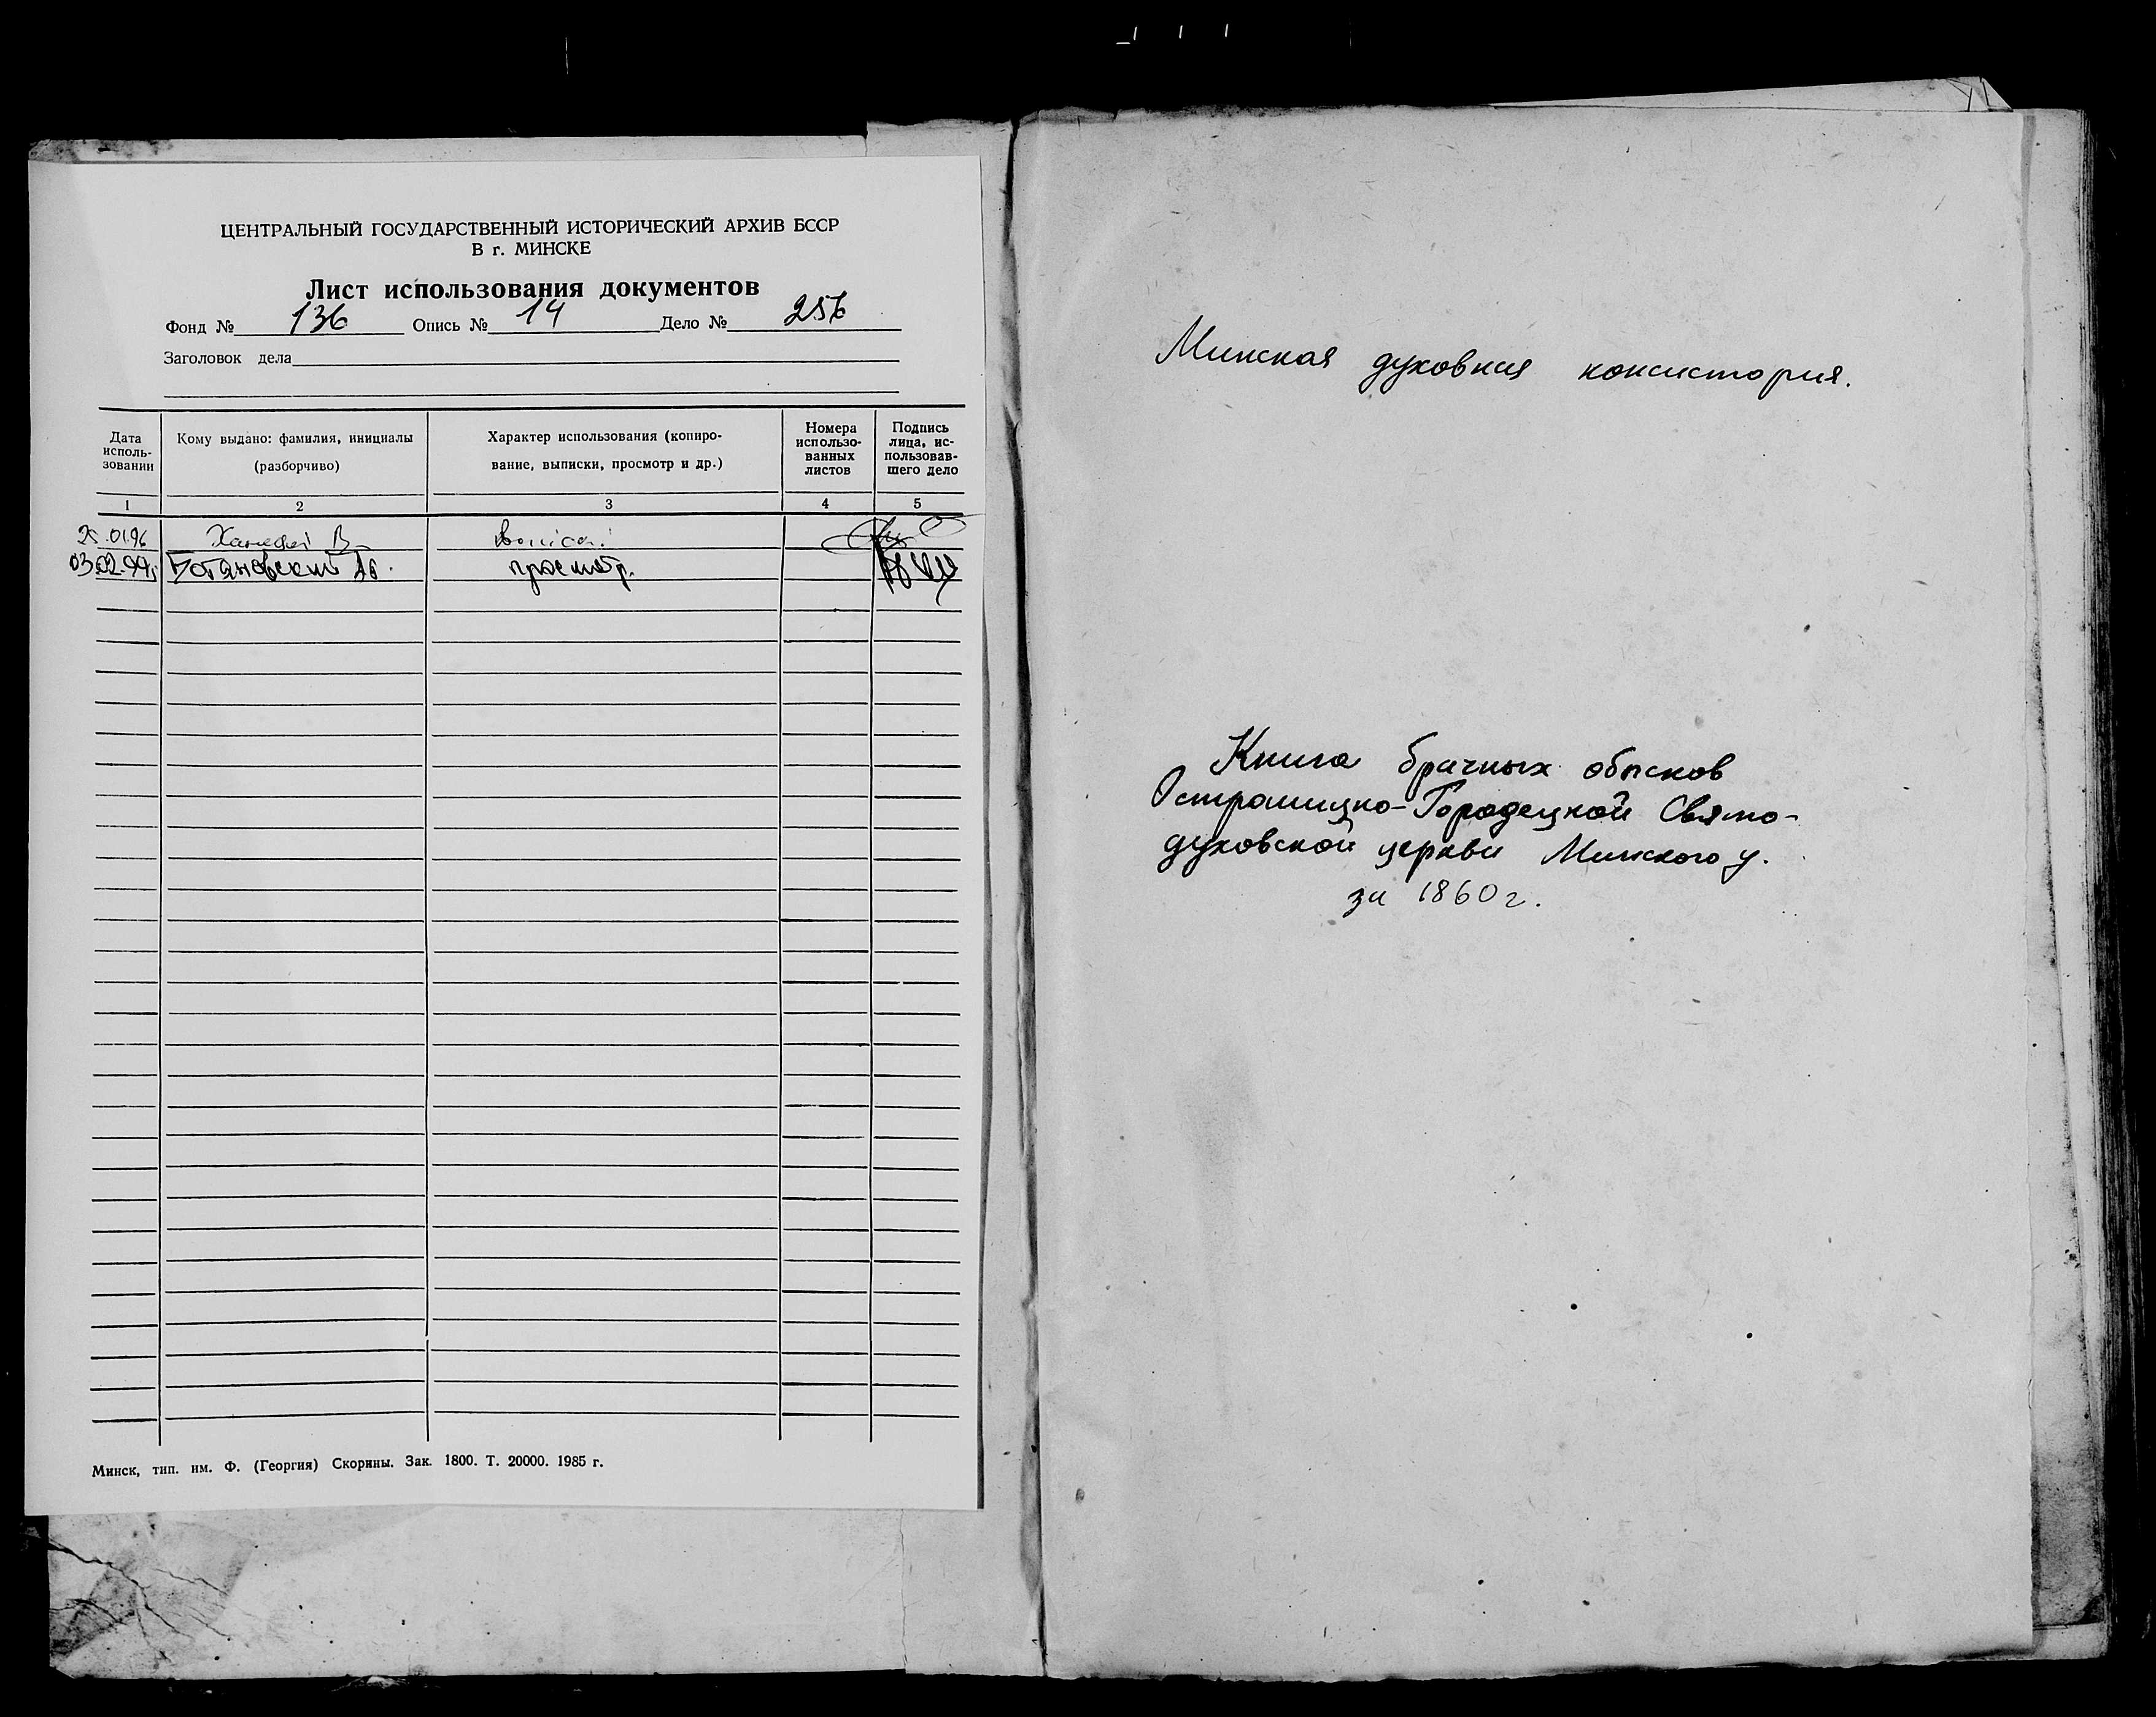 ЦЕНТРАЛЬНЫЙ ГОСУДАРСТВЕННЫЙ ИСТОРИЧЕСКИЙ АРХИВ БССР
В г. МИНСКЕ
Лист использования документов
Фонд № 136 Опись № 14 Дело № 256
Заголовок дела
Дата исполь- зовании
Кому выдано: фамилия, инициалы (разборчиво)
Характер использования (копиро- вание, выписки, просмотр и др.)
Номера использо- ванных листов
Подпись лица, ис- пользовав- шего дело
1 2 3 4 5
25.01.96
03.02.99 просмотр.
Минск, тип. им. Ф. (Георгия) Скорины. Зак. 1800. Т. 20000. 1985 г.
Минская духовная консистория.
Книга брачных обысков
Острошицко-Городецкой Свято-
духовской церкви Минского у.
за 1860 г.